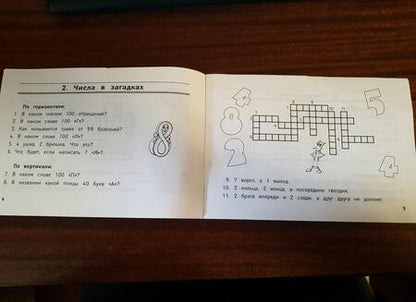 2. Числа в загадках
По горизонтали:
1. В каком глаголе 100 отрицаний?
2. В каком слове 100 «Г»?
3. Как называется трава от 99 болезней?
4. В каком слове 100 «Л»?
5. 4 ушка, 2 брюшка. Что это?
6. Что будет, если написать 7 «Я»?
По вертикали:
7. В каком слове 100 «П»?
8. В названии какой птицы 40 букв «А»?
4
9. 7 ворот, а 1 выход.
10. 2 кольца, 2 конца, а посередине гвоздик.
11. 2 брата впереди и 2 сзади, а друг друга не догонят.
5
4
8
2
5
4